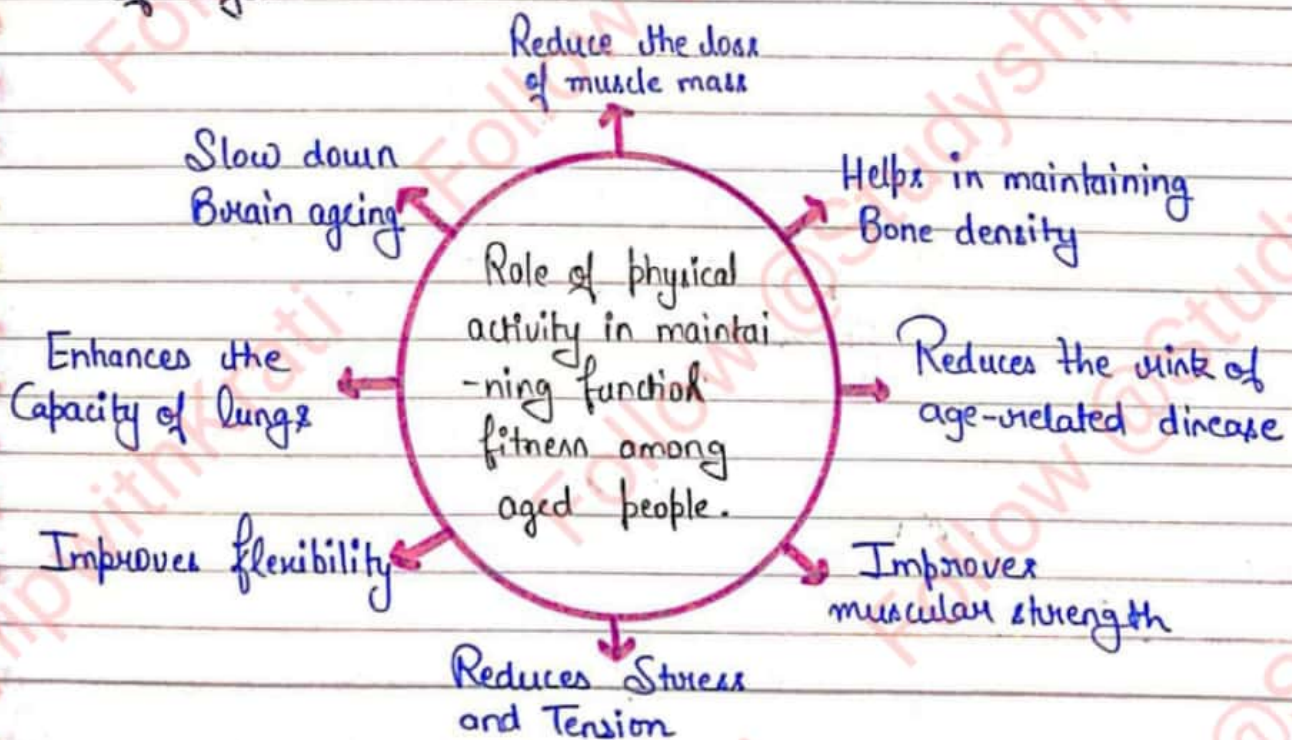 Reduce the loss
of muscle mass
Slow down
Brain ageing
Helps in maintaining
Bone density
Role of physical
activity in maintai
-ning function
fitness among
aged people.
Enhances the
Capacity of lungs
Reduces the risk of
age-related disease
Improves flexibility
Improves
muscular strength
Reduces Stress
and Tension
Follow @Studyship
withKrati
Follow @Stud